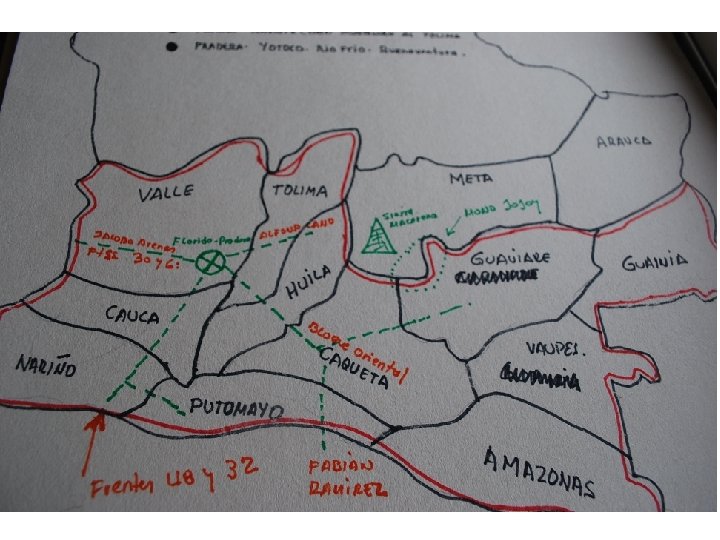 PRADERA. YOTOCO. RIO FRIO. BUENAVENTURA.
ARAUCA
VALLE
TOLIMA
META
Sierra
MACARENA
MONO JOJOY
JACOBO Arenas
FISS 30 Y 6:
Florida-Pradera
ALFONSO CANO
GUAVIARE
GUAINIA
HUILA
CAUCA
Bloque Oriental
CAQUETA
VAUPES.
NARIÑO
PUTOMAYO
Frentes 48 y 32
FABIAN
RAMIREZ
AMAZONAS